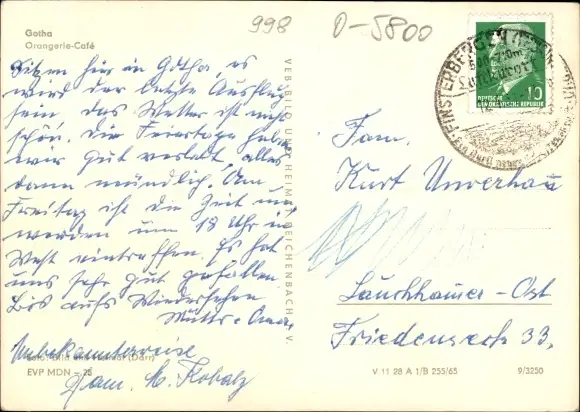 998
D-5800
Gotha
Orangerie-Café
Sitzen hier in Gotha, es
wird der letzte Ausflug
sein, das Wetter ist
schön. Die Feiertage haben
wir gut verlebt, alles
dann mündlich. Am
Freitag ist die Zeit um
werden um 18 Uhr in
West eintreffen. Es hat
uns sehr gut gefallen
Bis aufs Wiedersehen
Mutti u. Oma
Unbekannterweise
Fam. M. Kobalz
EVP MDN
VEB BILD UND HEIMAT REICHENBACH I. V.
FINSTERBERGEN
LUFTKURORT
10
DEUTSCHE
DEMOKRATISCHE REPUBLIK
Fam.
Kurt Unverhau
Lauchhammer-Ost
Friedenseck 33,
V 11 28 A 1/B 255/65
9/3250